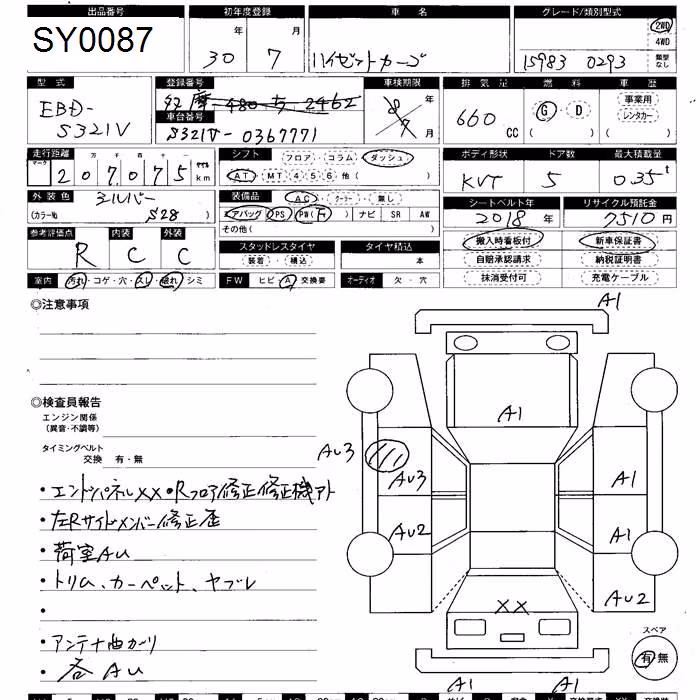 出品番号 初年度登録 車名 グレード/類別型式
SY0087 30年 7月 ハイゼットカーゴ 15983 0293 2WD
4WD
類型なし
型式 登録番号 車検期限 排気量 燃料 車歴
EBD-S321V 多摩 480 ち 2462 8年7月 660cc G・D ( ) 事業用
車台番号 レンタカー
S321V-0367771 ( )
走行距離 シフト フロア・コラム・ダッシュ ボディ形状 ドア数 最大積載量
マーク 十万千百十一 マイル
207075km AT・MT 4 5 6 他( ) KVT 5 0.35t
外装色 装備品 AC・クーラー・無し シートベルト年 リサイクル預託金
シルバー
(カラーNo. S28 ) エアバッグ PS PW(F) ナビ SR AW 2018年 7510円
その他( )
参考評価点 内装 外装 搬入時看板付 新車保証書
R C C スタッドレスタイヤ タイヤ積込 自賠承認請求 納税証明書
装着・積込 本 抹消受付可 充電ケーブル
室内 汚れ・コゲ・穴・スレ・破れ・シミ FW ヒビ・A 交換要 オーディオ 欠・穴
◎注意事項
A1
◎検査員報告
エンジン関係
(異音・不調等)
タイミングベルト
交換 有・無
・エンドパネルXX・Rフロア修正修正機アト
・左Rサイドメンバー修正歪
・荷室AU
・トリム、カーペット、ヤブレ
・
・アンテナ曲ガーリ
・各AU
A1
AU3
AU3 A1
AU2 A1
XX AU2
スペア
有・無
A1 A1